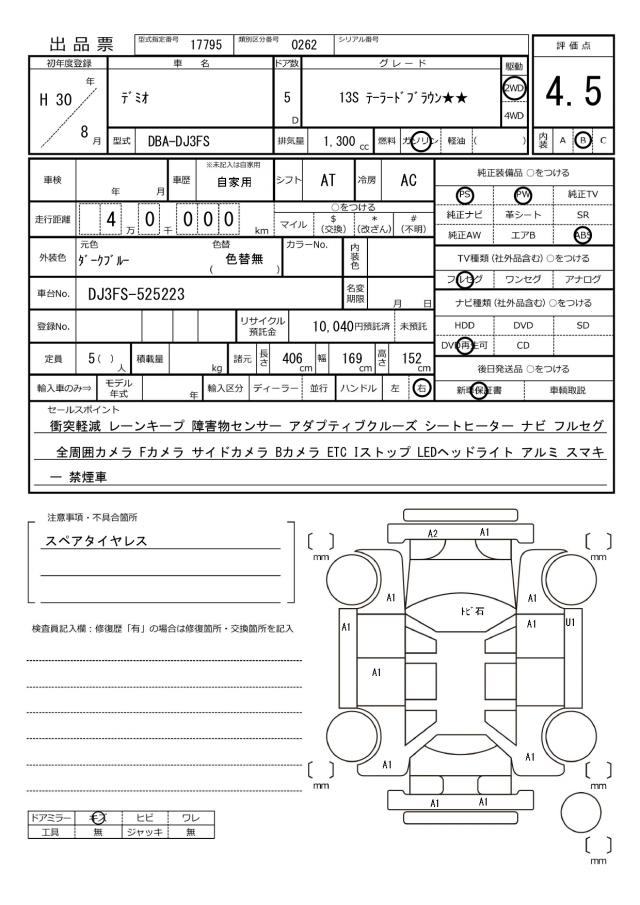 出品票
型式指定番号 17795 類別区分番号 0262 シリアル番号
評価点
初年度登録 車名 ドア数 グレード 駆動
H 30 年 8 月
デミオ
5 D
13S テーラードブラウン★★
2WD
4WD
4.5
型式 DBA-DJ3FS 排気量 1,300 cc 燃料 ガソリン 軽油 ( )
内装 A B C
車検 年 月 車歴 ※未記入は自家用 自家用 シフト AT 冷房 AC
純正装備品 ○をつける
PS PW 純正TV
純正ナビ 革シート SR
純正AW エアB ABS
走行距離 4 万 0 千 000 km
○をつける
マイル $(交換) *(改ざん) #(不明)
外装色 元色 ダークブルー 色替 ( 色替無 ) カラーNo. 内装色
TV種類(社外品含む) ○をつける
フルセグ ワンセグ アナログ
車台No. DJ3FS-525223 名変期限 月 日
ナビ種類(社外品含む) ○をつける
HDD DVD SD
DVD再生可 CD
登録No. リサイクル預託金 10,040円預託済 未預託
定員 5( )人 積載量 kg 諸元 長さ 406 cm 幅 169 cm 高さ 152 cm
後日発送品 ○をつける
新車保証書 車輌取説
輸入車のみ⇒ モデル年式 年 輸入区分 ディーラー 並行 ハンドル 左 右
セールスポイント
衝突軽減 レーンキープ 障害物センサー アダプティブクルーズ シートヒーター ナビ フルセグ
全周囲カメラ Fカメラ サイドカメラ Bカメラ ETC Iストップ LEDヘッドライト アルミ スマキ
ー 禁煙車
注意事項・不具合箇所
スペアタイヤレス
検査員記入欄：修復歴「有」の場合は修復箇所・交換箇所を記入
A2 A1
mm mm
A1 A1
トビ石
A1 A1 U1
A1
A1 A1
mm mm
A1 A1
mm
ドアミラー キズ ヒビ ワレ
工具 無 ジャッキ 無